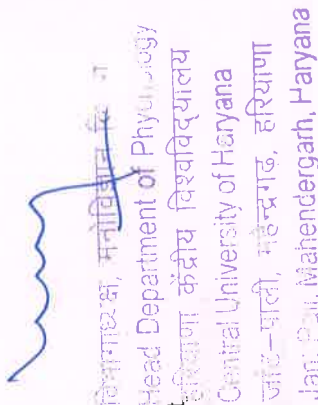 विभागाध्यक्ष, मनोविज्ञान
Head Department of
हरियाणा केंद्रीय विश्वविद्यालय
Central University of Haryana
जाट-पाली, महेन्द्रगढ़, हरियाणा
Mahendergarh, Haryana